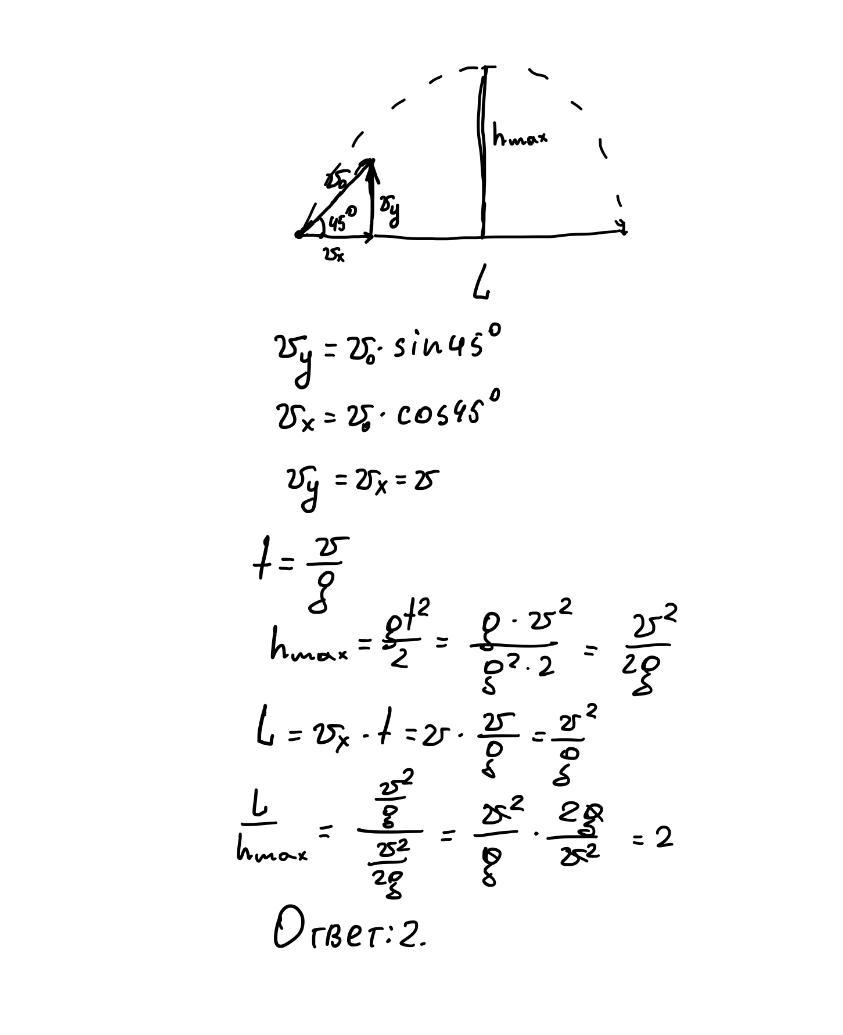 hmax
v₀
45°
vy
vx
L
vy = v₀ · sin45°
vx = v₀ · cos45°
vy = vx = v
t = v/g
hmax = gt²/2 = g · v²/g² · 2 = v²/2g
L = vx · t = v · v/g = v²/g
L/hmax = (v²/g)/(v²/2g) = v²/g · 2g/v² = 2
Ответ: 2.